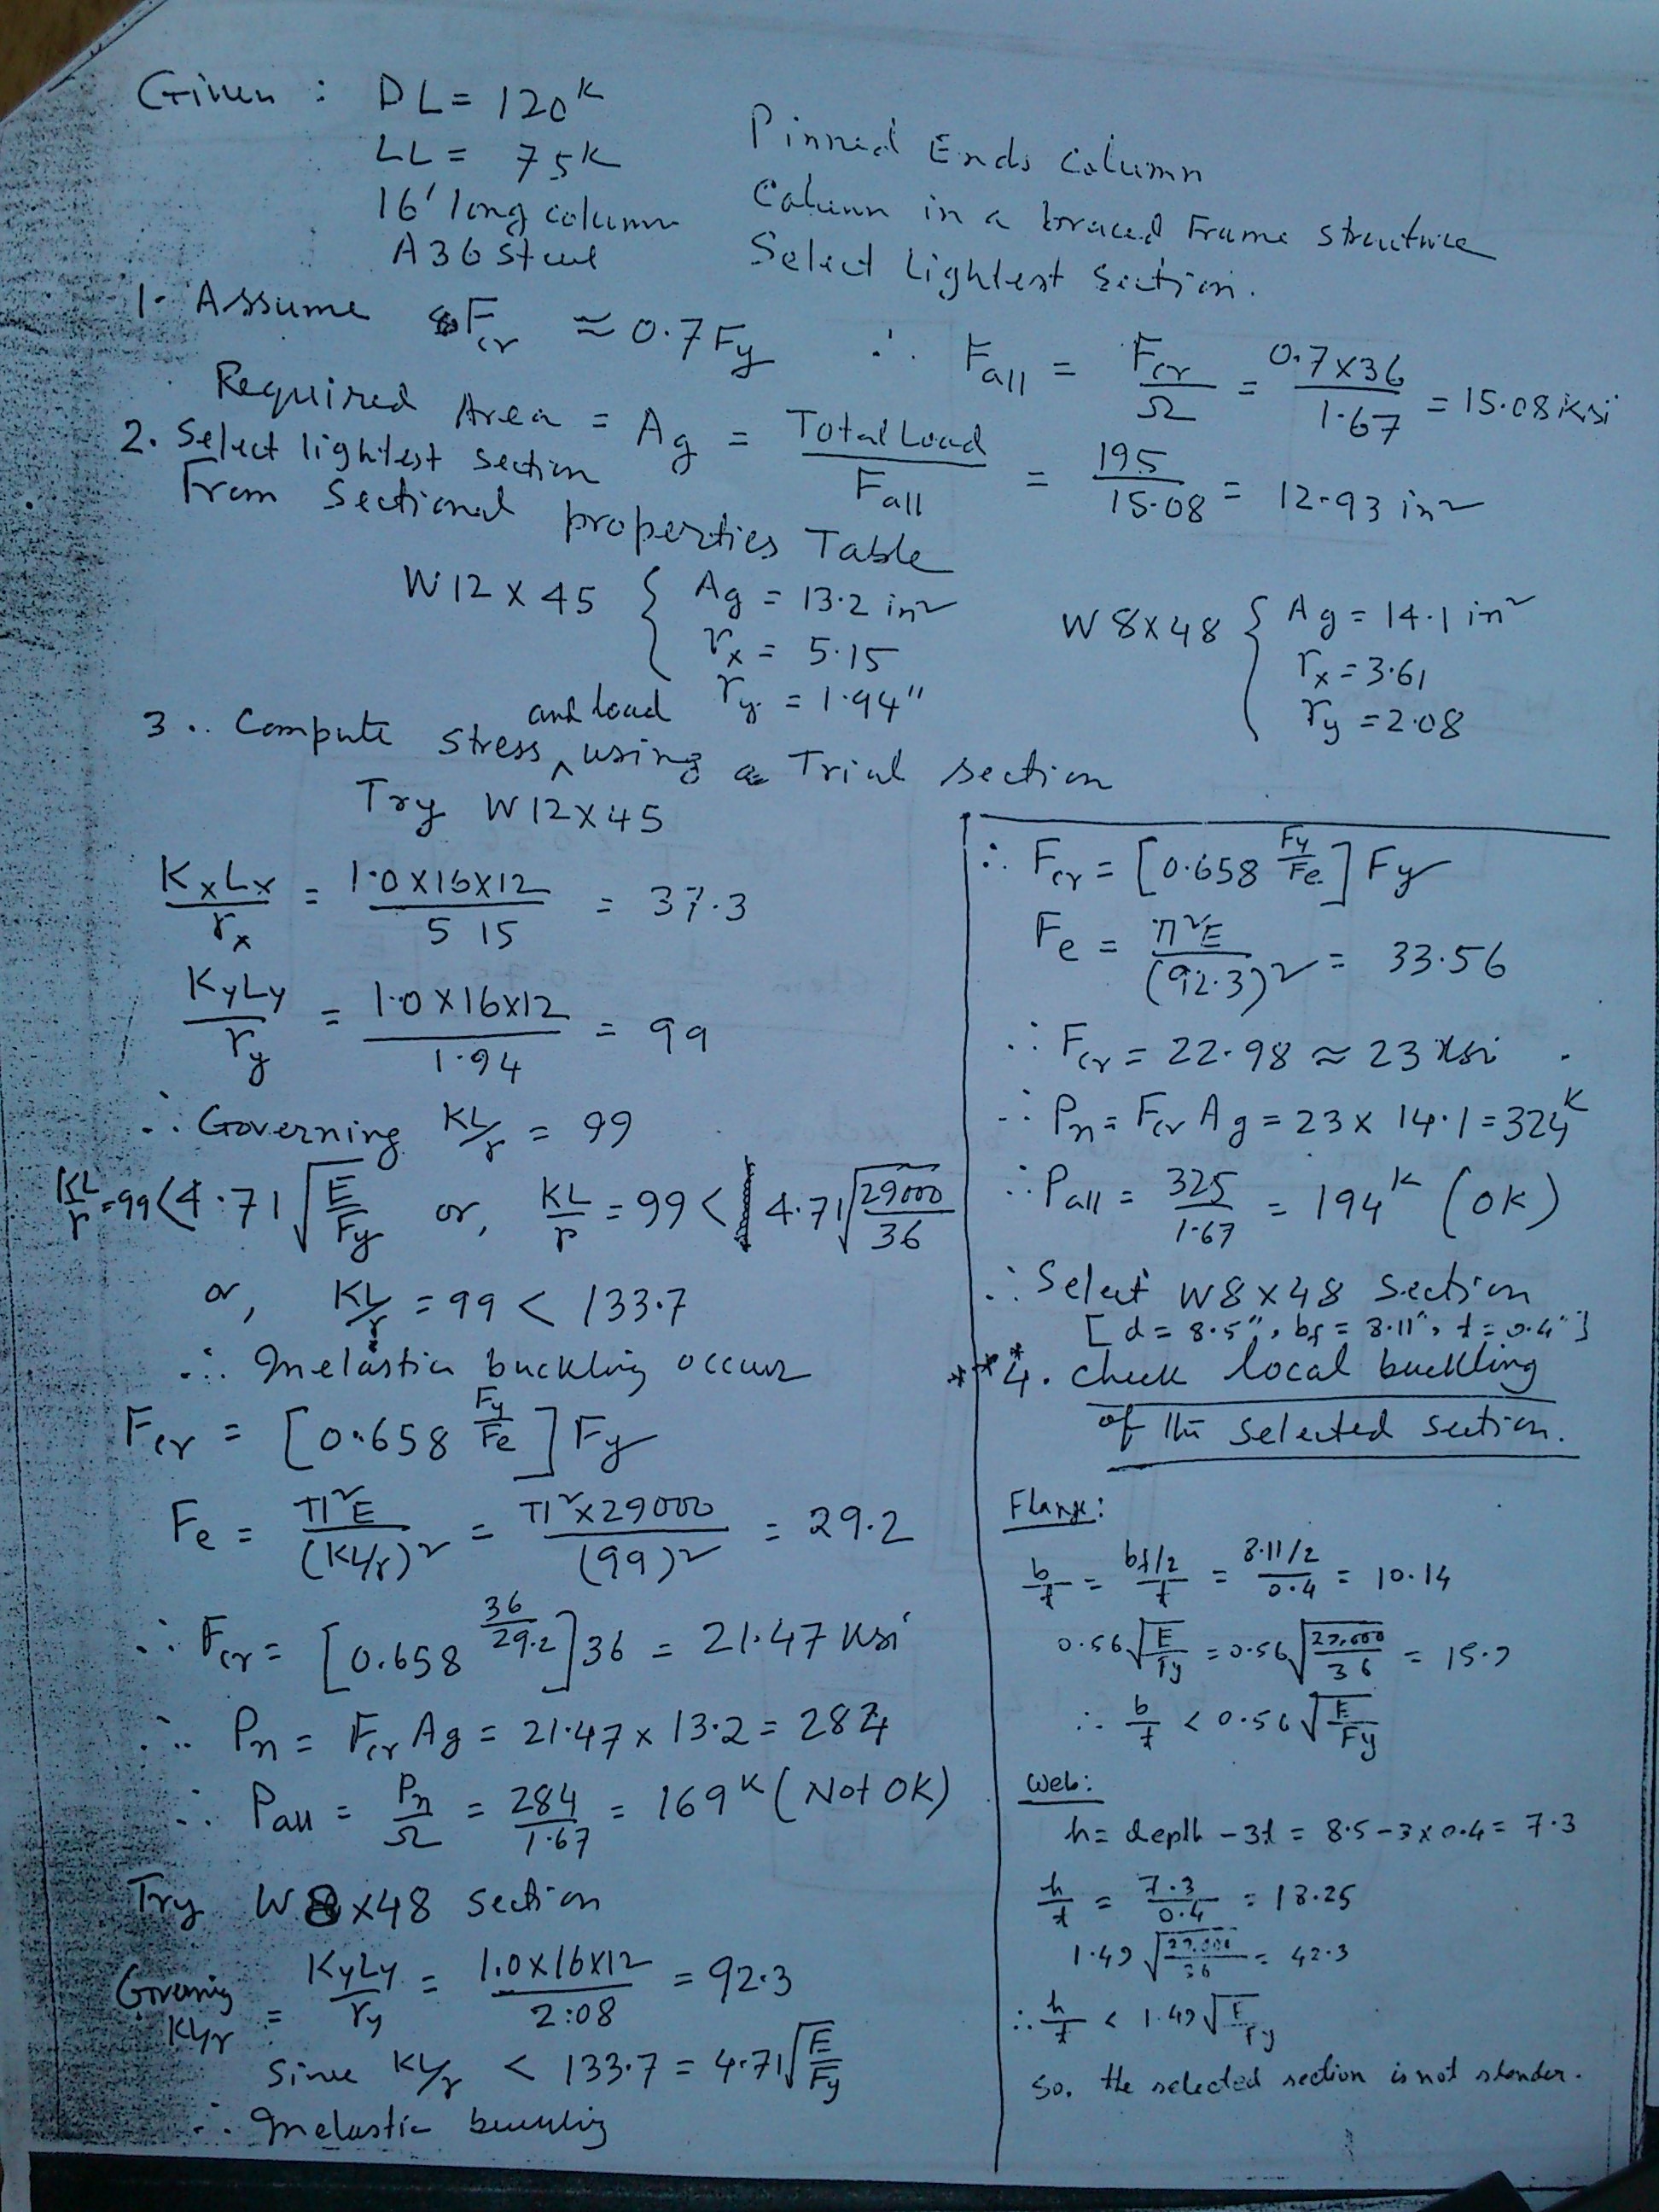 Given : DL = 120K
LL = 75K
16' long column
A36 Steel
Pinned Ends Column
Column in a braced Frame structure
Select Lightest Section.
1. Assume Fcr ≈ 0.7Fy ∴ Fall = Fcr/Ω = 0.7×36/1.67 = 15.08 ksi
Required Area = Ag = Total Load/Fall = 195/15.08 = 12.93 in²
2. Select lightest section
From Sectional properties Table
W12×45 { Ag = 13.2 in²
rx = 5.15
ry = 1.94"
W8×48 { Ag = 14.1 in²
rx = 3.61
ry = 2.08
3.. Compute stress ^ and load using a Trial section
Try W12×45
KxLx/rx = 1.0×16×12/5 15 = 37.3
KyLy/ry = 1.0×16×12/1.94 = 99
∴ Governing KL/r = 99
KL/r = 99 < 4.71√(E/Fy) or, KL/r = 99 < 4.71√(29000/36)
or, KL/r = 99 < 133.7
∴ Inelastic buckling occurs
Fcr = [0.658^(Fy/Fe)] Fy
Fe = π²E/(KL/r)² = π²×29000/(99)² = 29.2
∴ Fcr = [0.658^(36/29.2)] 36 = 21.47 Ksi
∴ Pn = Fcr Ag = 21.47 × 13.2 = 284
∴ Pall = Pn/Ω = 284/1.67 = 169K (Not OK)
Try W8×48 section
Governing KL/r = KyLy/ry = 1.0×16×12/2.08 = 92.3
Since KL/r < 133.7 = 4.71√(E/Fy)
∴ Inelastic buckling
∴ Fcr = [0.658^(Fy/Fe)] Fy
Fe = π²E/(92.3)² = 33.56
∴ Fcr = 22.98 ≈ 23 Ksi
∴ Pn = Fcr Ag = 23 × 14.1 = 324K
∴ Pall = 325/1.67 = 194K (OK)
∴ Select W8×48 section
[ d = 8.5", bf = 8.11", t = 0.4" ]
***4. Check local buckling
of the selected section.
Flange:
b/t = bf/2/t = 8.11/2/0.4 = 10.14
0.56√(E/Fy) = 0.56√(29,000/36) = 15.9
∴ b/t < 0.56√(E/Fy)
Web:
h = depth - 3t = 8.5 - 3×0.4 = 7.3
h/t = 7.3/0.4 = 18.25
1.49√(29,000/36) = 42.3
∴ h/t < 1.49√(E/Fy)
So, the selected section is not slender.